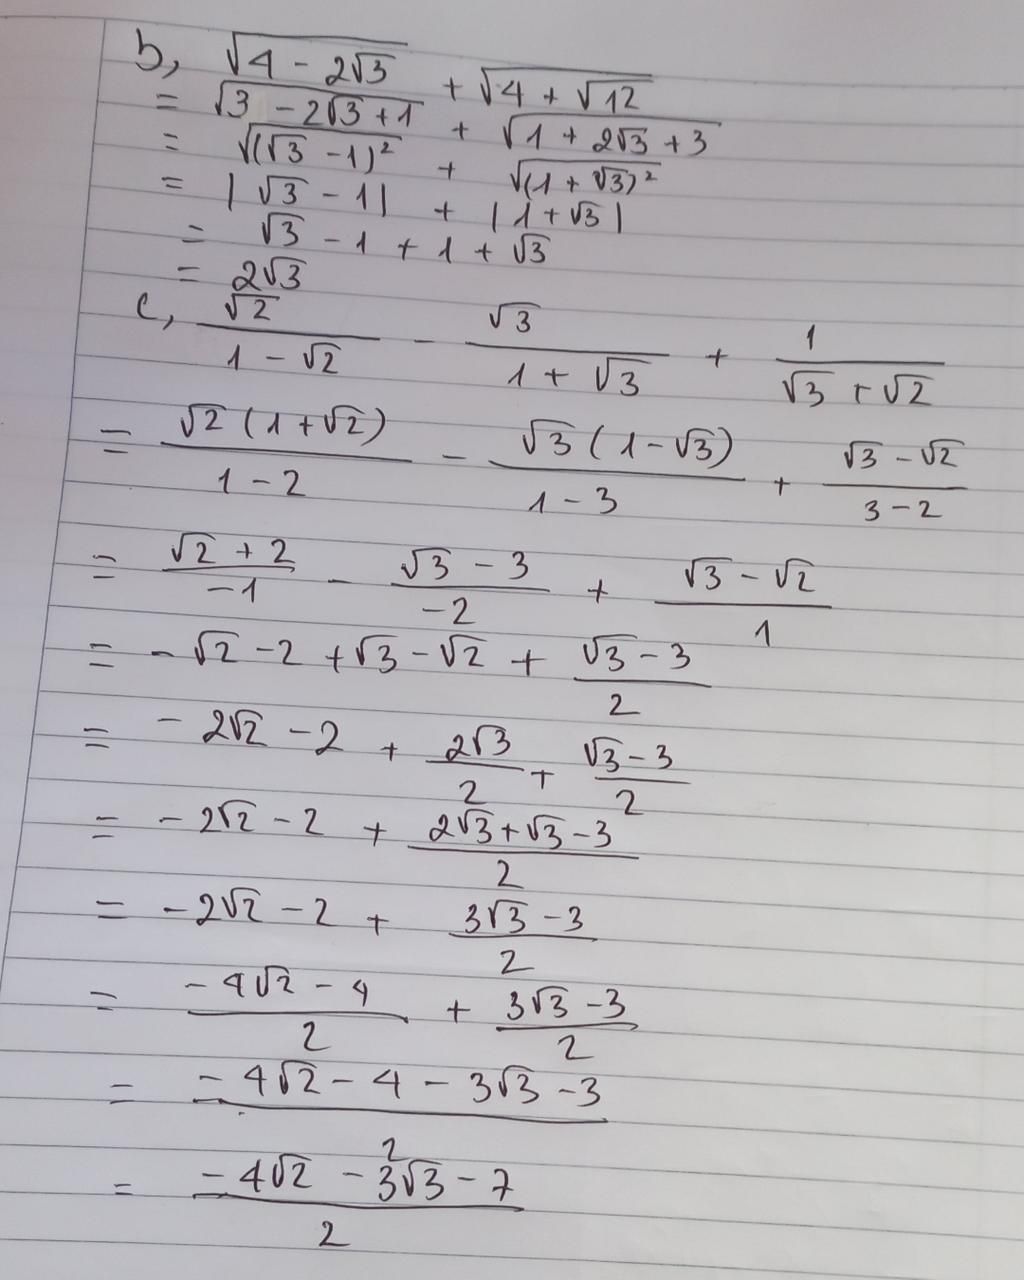 b, √(4 - 2√3) + √(4 + √12)
= √(3 - 2√3 + 1) + √(1 + 2√3 + 3)
= √((√3 - 1)²) + √((1 + √3)²)
= |√3 - 1| + |1 + √3|
= √3 - 1 + 1 + √3
= 2√3
c, √2/(1 - √2) - √3/(1 + √3) + 1/(√3 + √2)
= √2(1 + √2)/(1 - 2) - √3(1 - √3)/(1 - 3) + (√3 - √2)/(3 - 2)
= (√2 + 2)/(-1) - (√3 - 3)/(-2) + (√3 - √2)/1
= -√2 - 2 + √3 - √2 + (√3 - 3)/2
= -2√2 - 2 + 2√3/2 + (√3 - 3)/2
= -2√2 - 2 + (2√3 + √3 - 3)/2
= -2√2 - 2 + (3√3 - 3)/2
= (-4√2 - 4)/2 + (3√3 - 3)/2
= (-4√2 - 4 - 3√3 - 3)/2
= (-4√2 - 3√3 - 7)/2